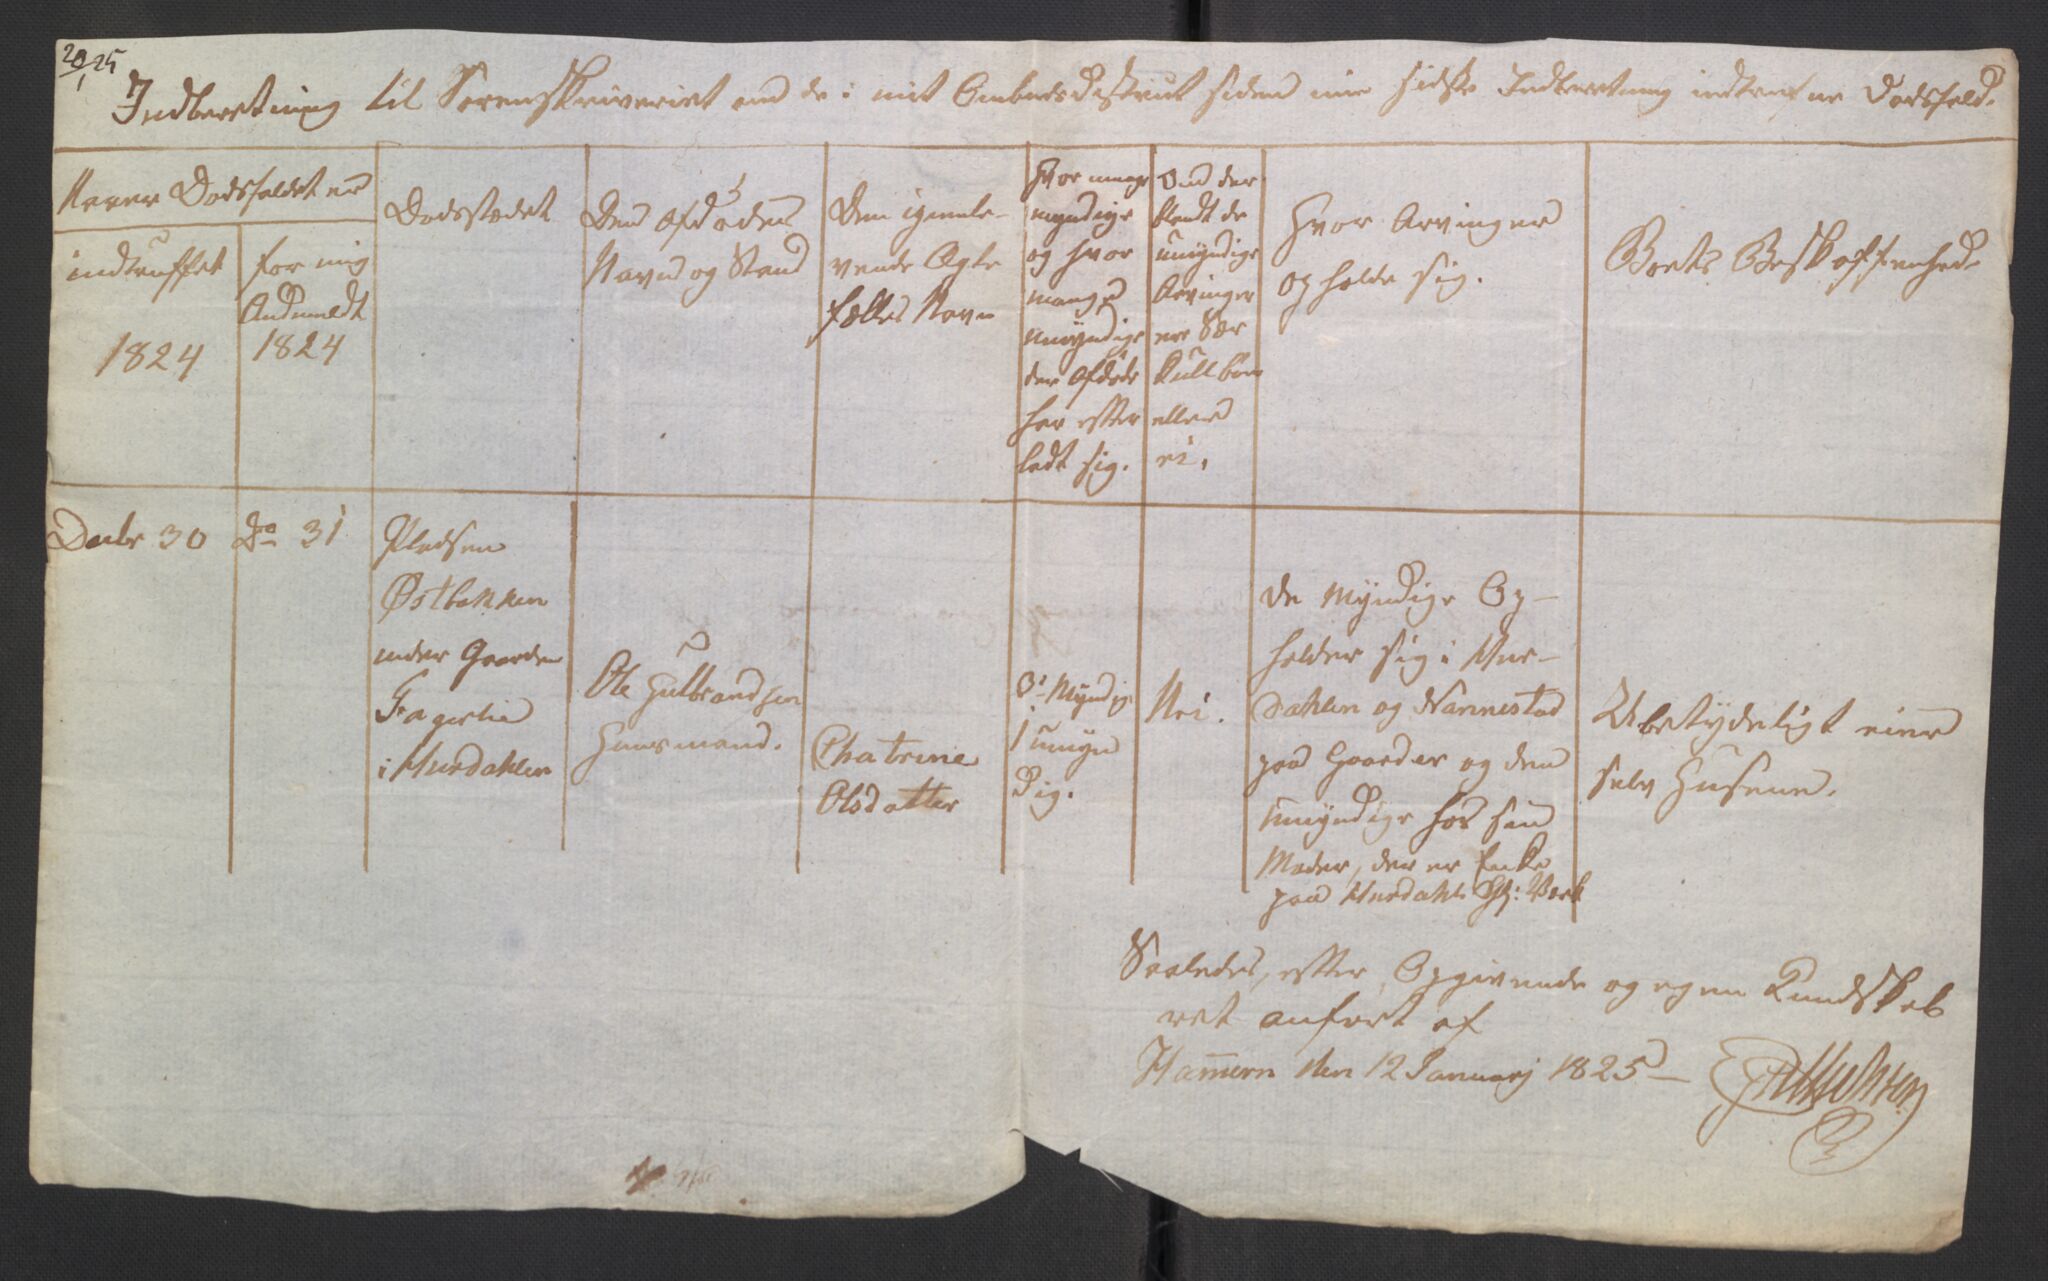 20/1 25
Indberetning til Sorenskriveriet om de i mit Ombudsdistrict siden min sidste Indberetning indtrufne Dødsfald.
Naar Dødsfaldet er
indtruffet
1824
for mig
Andmeldt
1824
Dødsstædet
Den Afdødes
Navn og Stand
Den igienle-
vende Ægte
fælles Navn
Hvor mange
myndige
og hvor
mange
umyndige
den Afdøde
har efter
ladt sig.
Om der
blandt de
umyndige
Arvinger
ere Sær
Kullbørn
eller
ei.
Hvor Arvingerne
opholde sig.
Boets Beskaffenhed.
Decbr 30
Do 31
Pladsen
Østbakken
under Gaarden
Fagerlie
i Hurdahlen
Ole Gulbrandsen
Huusmand.
Chatrine
Olsdatter
3 Myndig
1 umyn
dig.
Nei.
de Myndige Op-
holder sig i Hur-
dahlen og Nannestad
paa Gaarder og den
umyndige hos sin
Moder, der er Enke
paa Hurdahls Gl: Værk
Ubetydeligt eier
selv Husene.
Saaledes, efter Opgivende og egen Kundskab
ret anført af
Hammern den 12 Januarj 1825